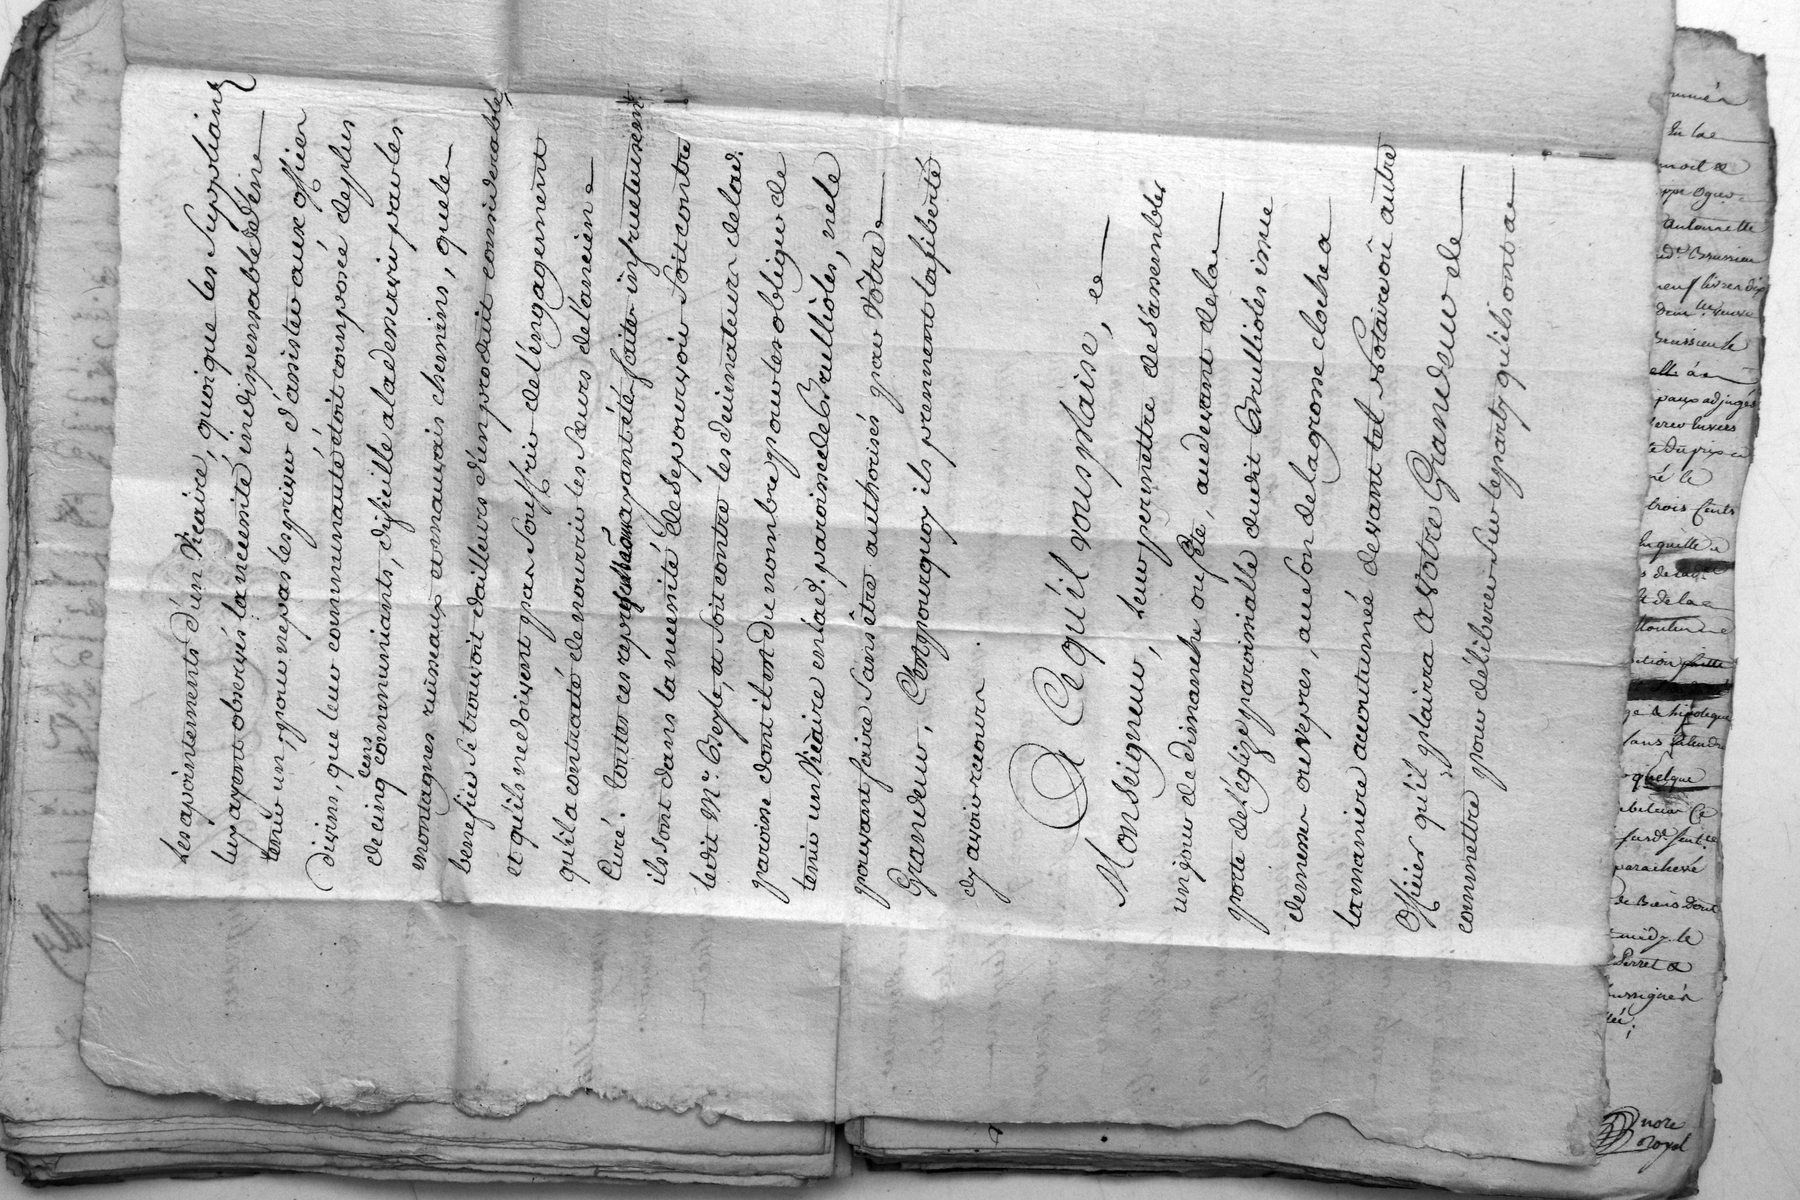 les apointements d'un Vicaire, quoique les Supplians
luy ayent observés la necessité indispensable d'en
tenir un, pour ne pas les priver d'assister aux offices
divins, que leur communauté étoit composée de plus
de cinq cens communiants, dificille a la desservir par les
montagnes ruineaux et mauvais chemins, que le
benefice se trouvoit dailleurs d'un produit considerable,
et qu'ils ne doivent pas souffrir de l'engagement
qu'il a contracté de nourrir les Sœurs de l'ancien
Curé. toutes ces representaõns ayant été faites infructueusemt.
ils sont dans la necessité de se pourvoir soit contre
ledit Mr. Beyle, et soit contre les decimateurs de lad.
paroisse dont il est du nombre pour les obliger de
tenir un Vicaire en lad. paroisse de Brullioles, et ne le
pouvant faire sans être authorisés par Vôtre
Grandeur, C'est pourquoy ils prennent la liberté
d'y avoir recours.
A Ce qu'il vous plaise,
Monseigneur, leur permettre de s'assembler
un jour de dimanche ou fête, au devant de la
porte de l'église paroissialle dudit Brullioles issue
de messe ou vepres, au son de la grosse cloche a
la maniere accoutumée devant tel Notaire où autre
Officier qu'il plairra a Votre Grandeur de
commettre pour délibérer sur le party qu'ils ont a
En la
Antoinette
Brussieu
neuf livres dix
Brussieu le
pays adjugés
du prix
trois Cents
laquelle
de la
hipoteque
quelque
parachevé
de Biens Dont
midy le
Perret
soussignés
nore
royal